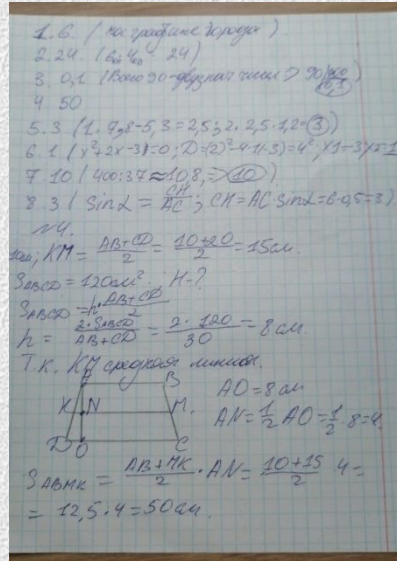 1. 6. (на графике города)
2. 24. (24)
3. 0,1 (Всего 90 - двузнач чисел => 90
4. 50
5. 3 (1. 7,8-5,3=2,5; 2. 2,5·1,2=3)
6. 1 (x²+2x-3)=0; D=(2)²-4·1(-3)=4²; x1=-3; x2=1
7. 10 (400:37≈10,8 => 10)
8. 3 (Sinα = CH/AC; CH=AC·Sinα=6·0,5=3)
№4.
KM = AB+CD/2 = 10+20/2 = 15см.
SABCD=120см²; H-?
SABCD=h·AB+CD/2
h = 2·SABCD/AB+CD = 2·120/30 = 8см.
Т.к. KM средняя линия.
B
AO=8см
K N M.
AN=1/2 AO=1/2·8=4.
D O C
SABMK = AB+MK/2 · AN = 10+15/2 · 4 =
= 12,5·4=50см.